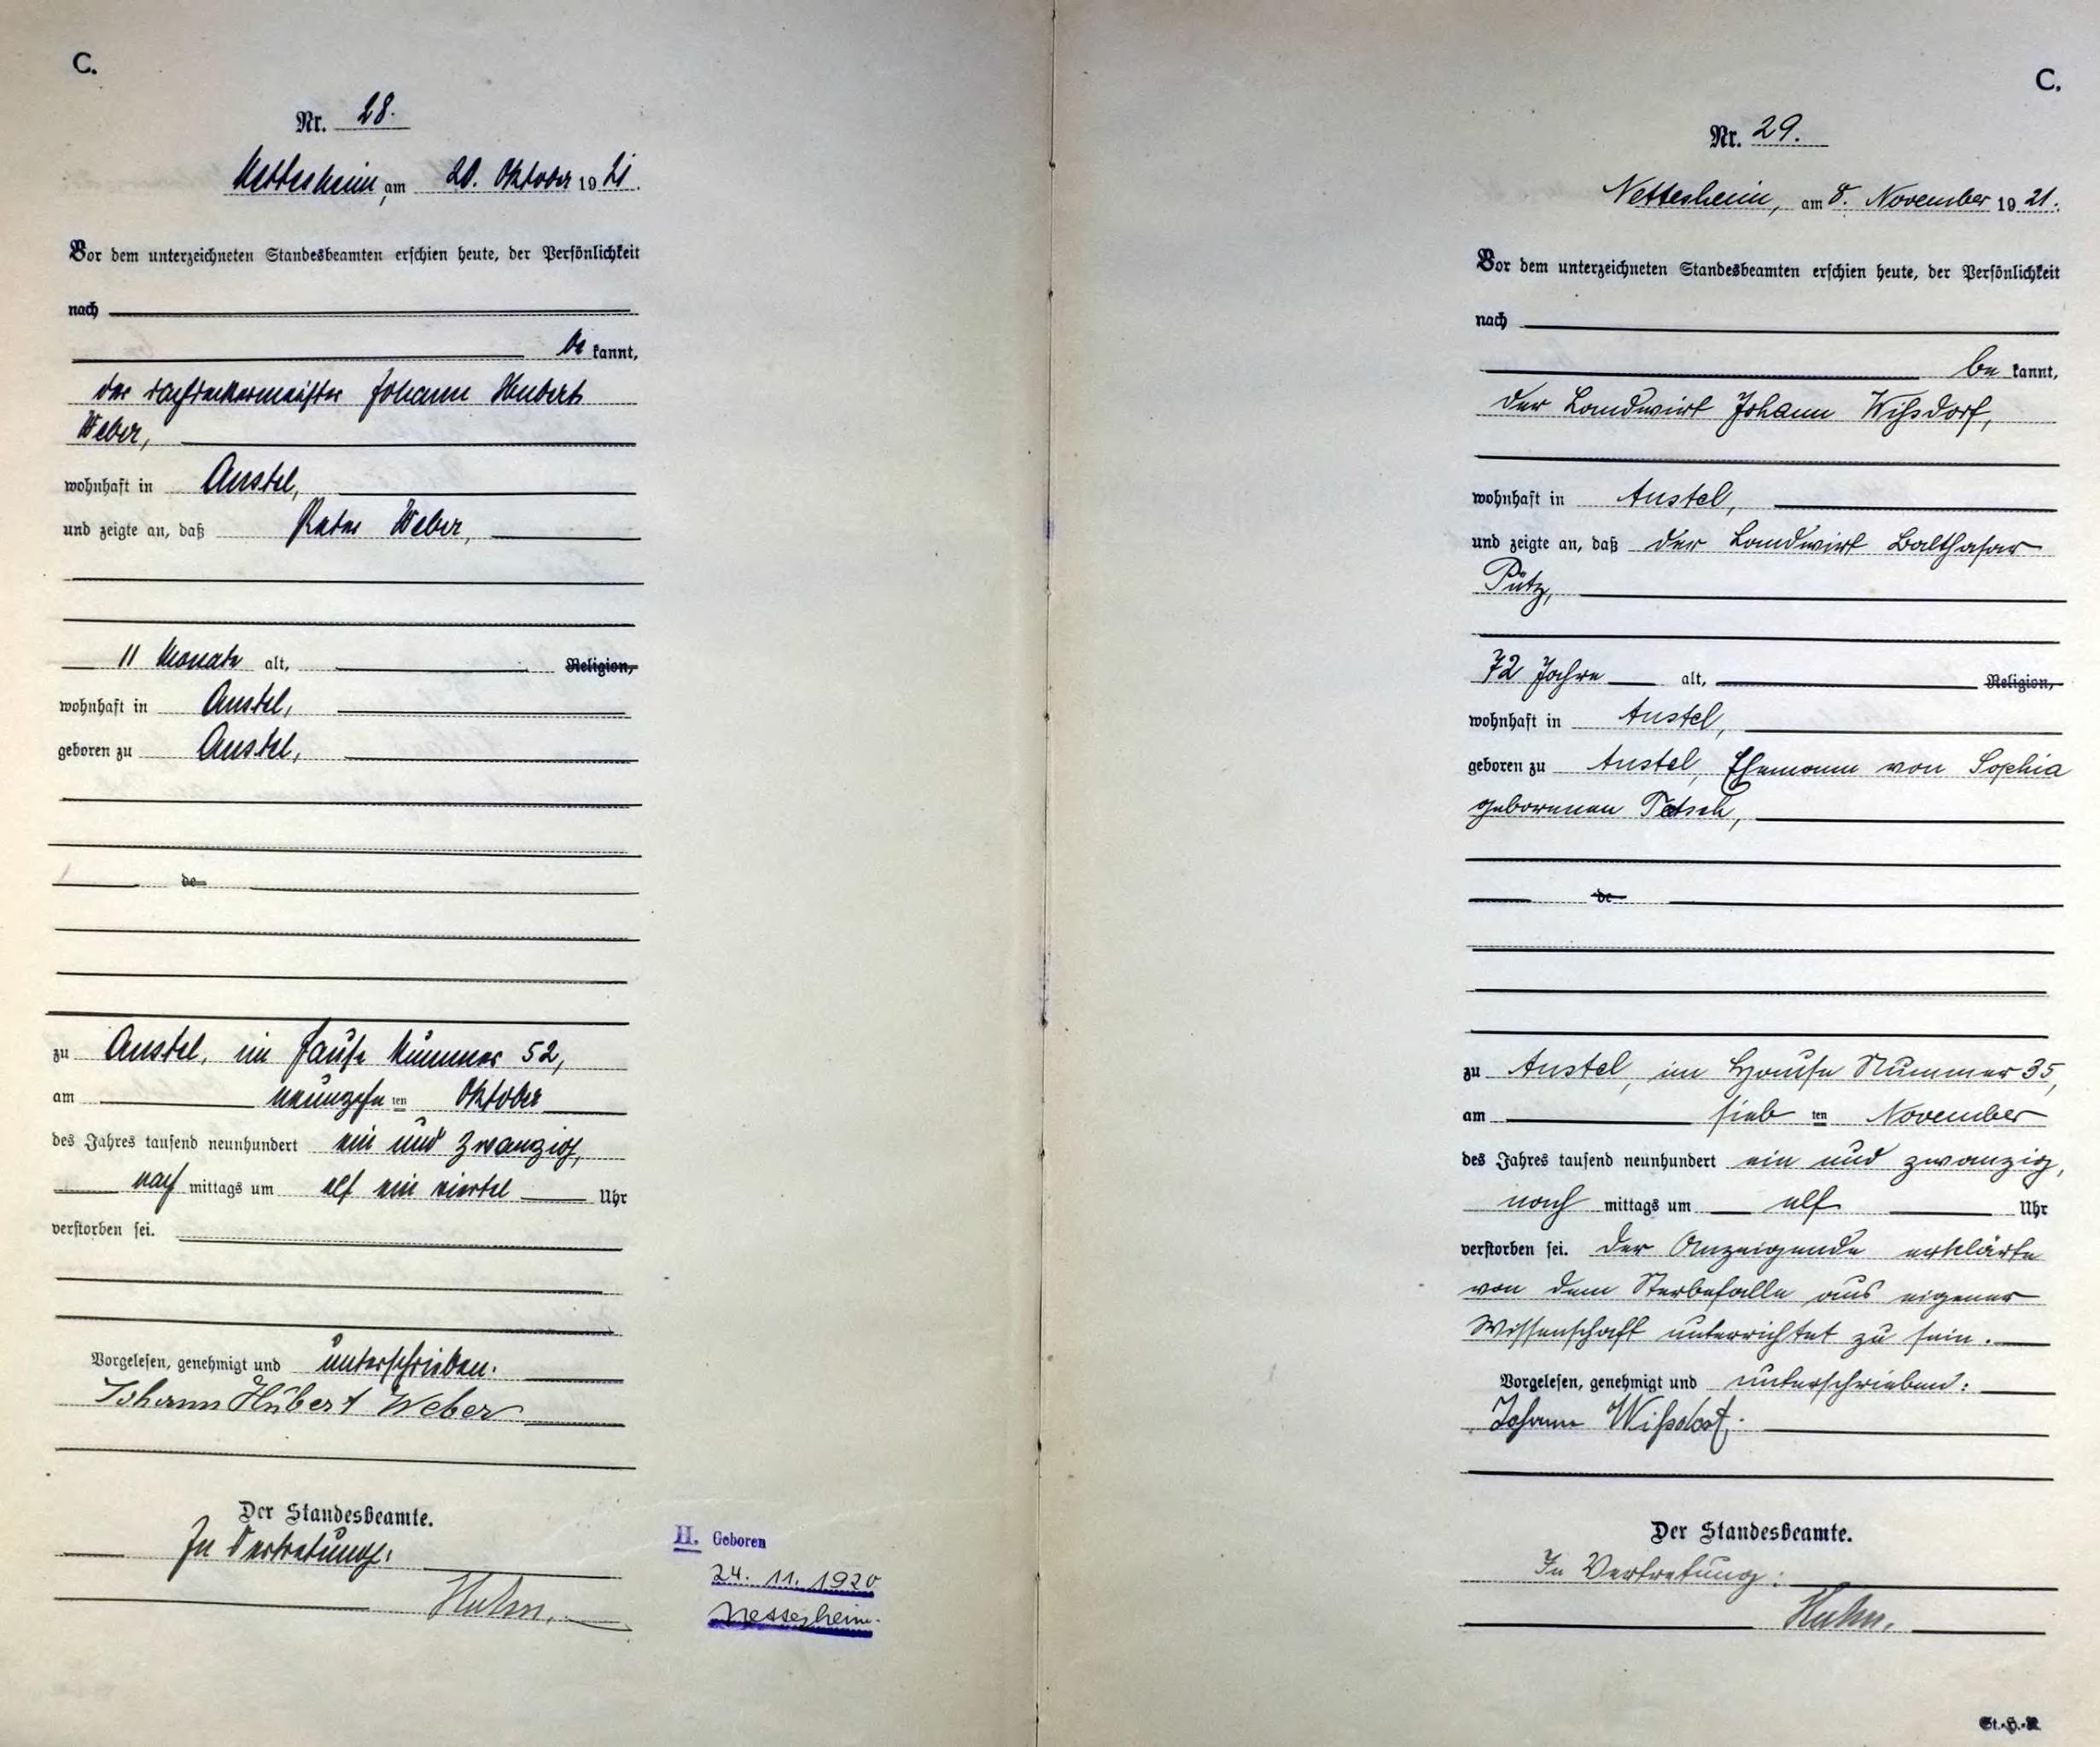 C.
Nr. 28.
Nettesheim, am 20. Oktober 1921.
Vor dem unterzeichneten Standesbeamten erschien heute, der Persönlichkeit
nach
be kannt,
der Dachdeckermeister Johann Hubert
Weber,
wohnhaft in Anstel,
und zeigte an, daß Peter Weber,
11 Monate alt, Religion,
wohnhaft in Anstel,
geboren zu Anstel,
de
zu Anstel, im Hause Nummer 52,
am neunzehn ten Oktober
des Jahres tausend neunhundert ein und zwanzig,
nach mittags um elf ein viertel Uhr
verstorben sei.
Vorgelesen, genehmigt und unterschrieben.
Johann Hubert Weber
Der Standesbeamte.
In Vertretung:
Huhn.
II. Geboren
24. 11. 1920
Nettesheim.
C.
Nr. 29.
Nettesheim, am 8. November 1921.
Vor dem unterzeichneten Standesbeamten erschien heute, der Persönlichkeit
nach
be kannt,
der Landwirt Johann Wißdorf,
wohnhaft in Anstel,
und zeigte an, daß der Landwirt Balthasar
Pütz,
72 Jahre alt, Religion,
wohnhaft in Anstel,
geboren zu Anstel, Ehemann von Sophia
geborenen
de
zu Anstel, im Hause Nummer 35,
am sieb ten November
des Jahres tausend neunhundert ein und zwanzig,
nach mittags um elf Uhr
verstorben sei. Der Anzeigende erklärte
von dem Sterbefalle aus eigener
Wissenschaft unterrichtet zu sein.
Vorgelesen, genehmigt und unterschrieben:
Johann Wißdorf.
Der Standesbeamte.
In Vertretung:
Huhn.
St.-H.-R.